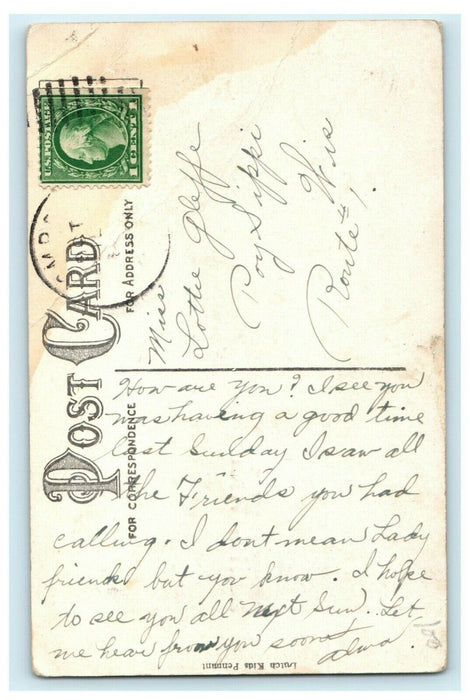 U.S. POSTAGE
1 CENT 1
POST CARD
FOR ADDRESS ONLY
FOR CORRESPONDENCE
Miss
Lottie
Poy Sippi
Wis
Route # 1,
How are you? I see you
was having a good time
last Sunday I saw all
the Friends you had
calling. I dont mean Lady
friends but you know. I hope
to see you all next Sun. Let
me hear from you soon,
Alma.
Dutch Kids Pennant